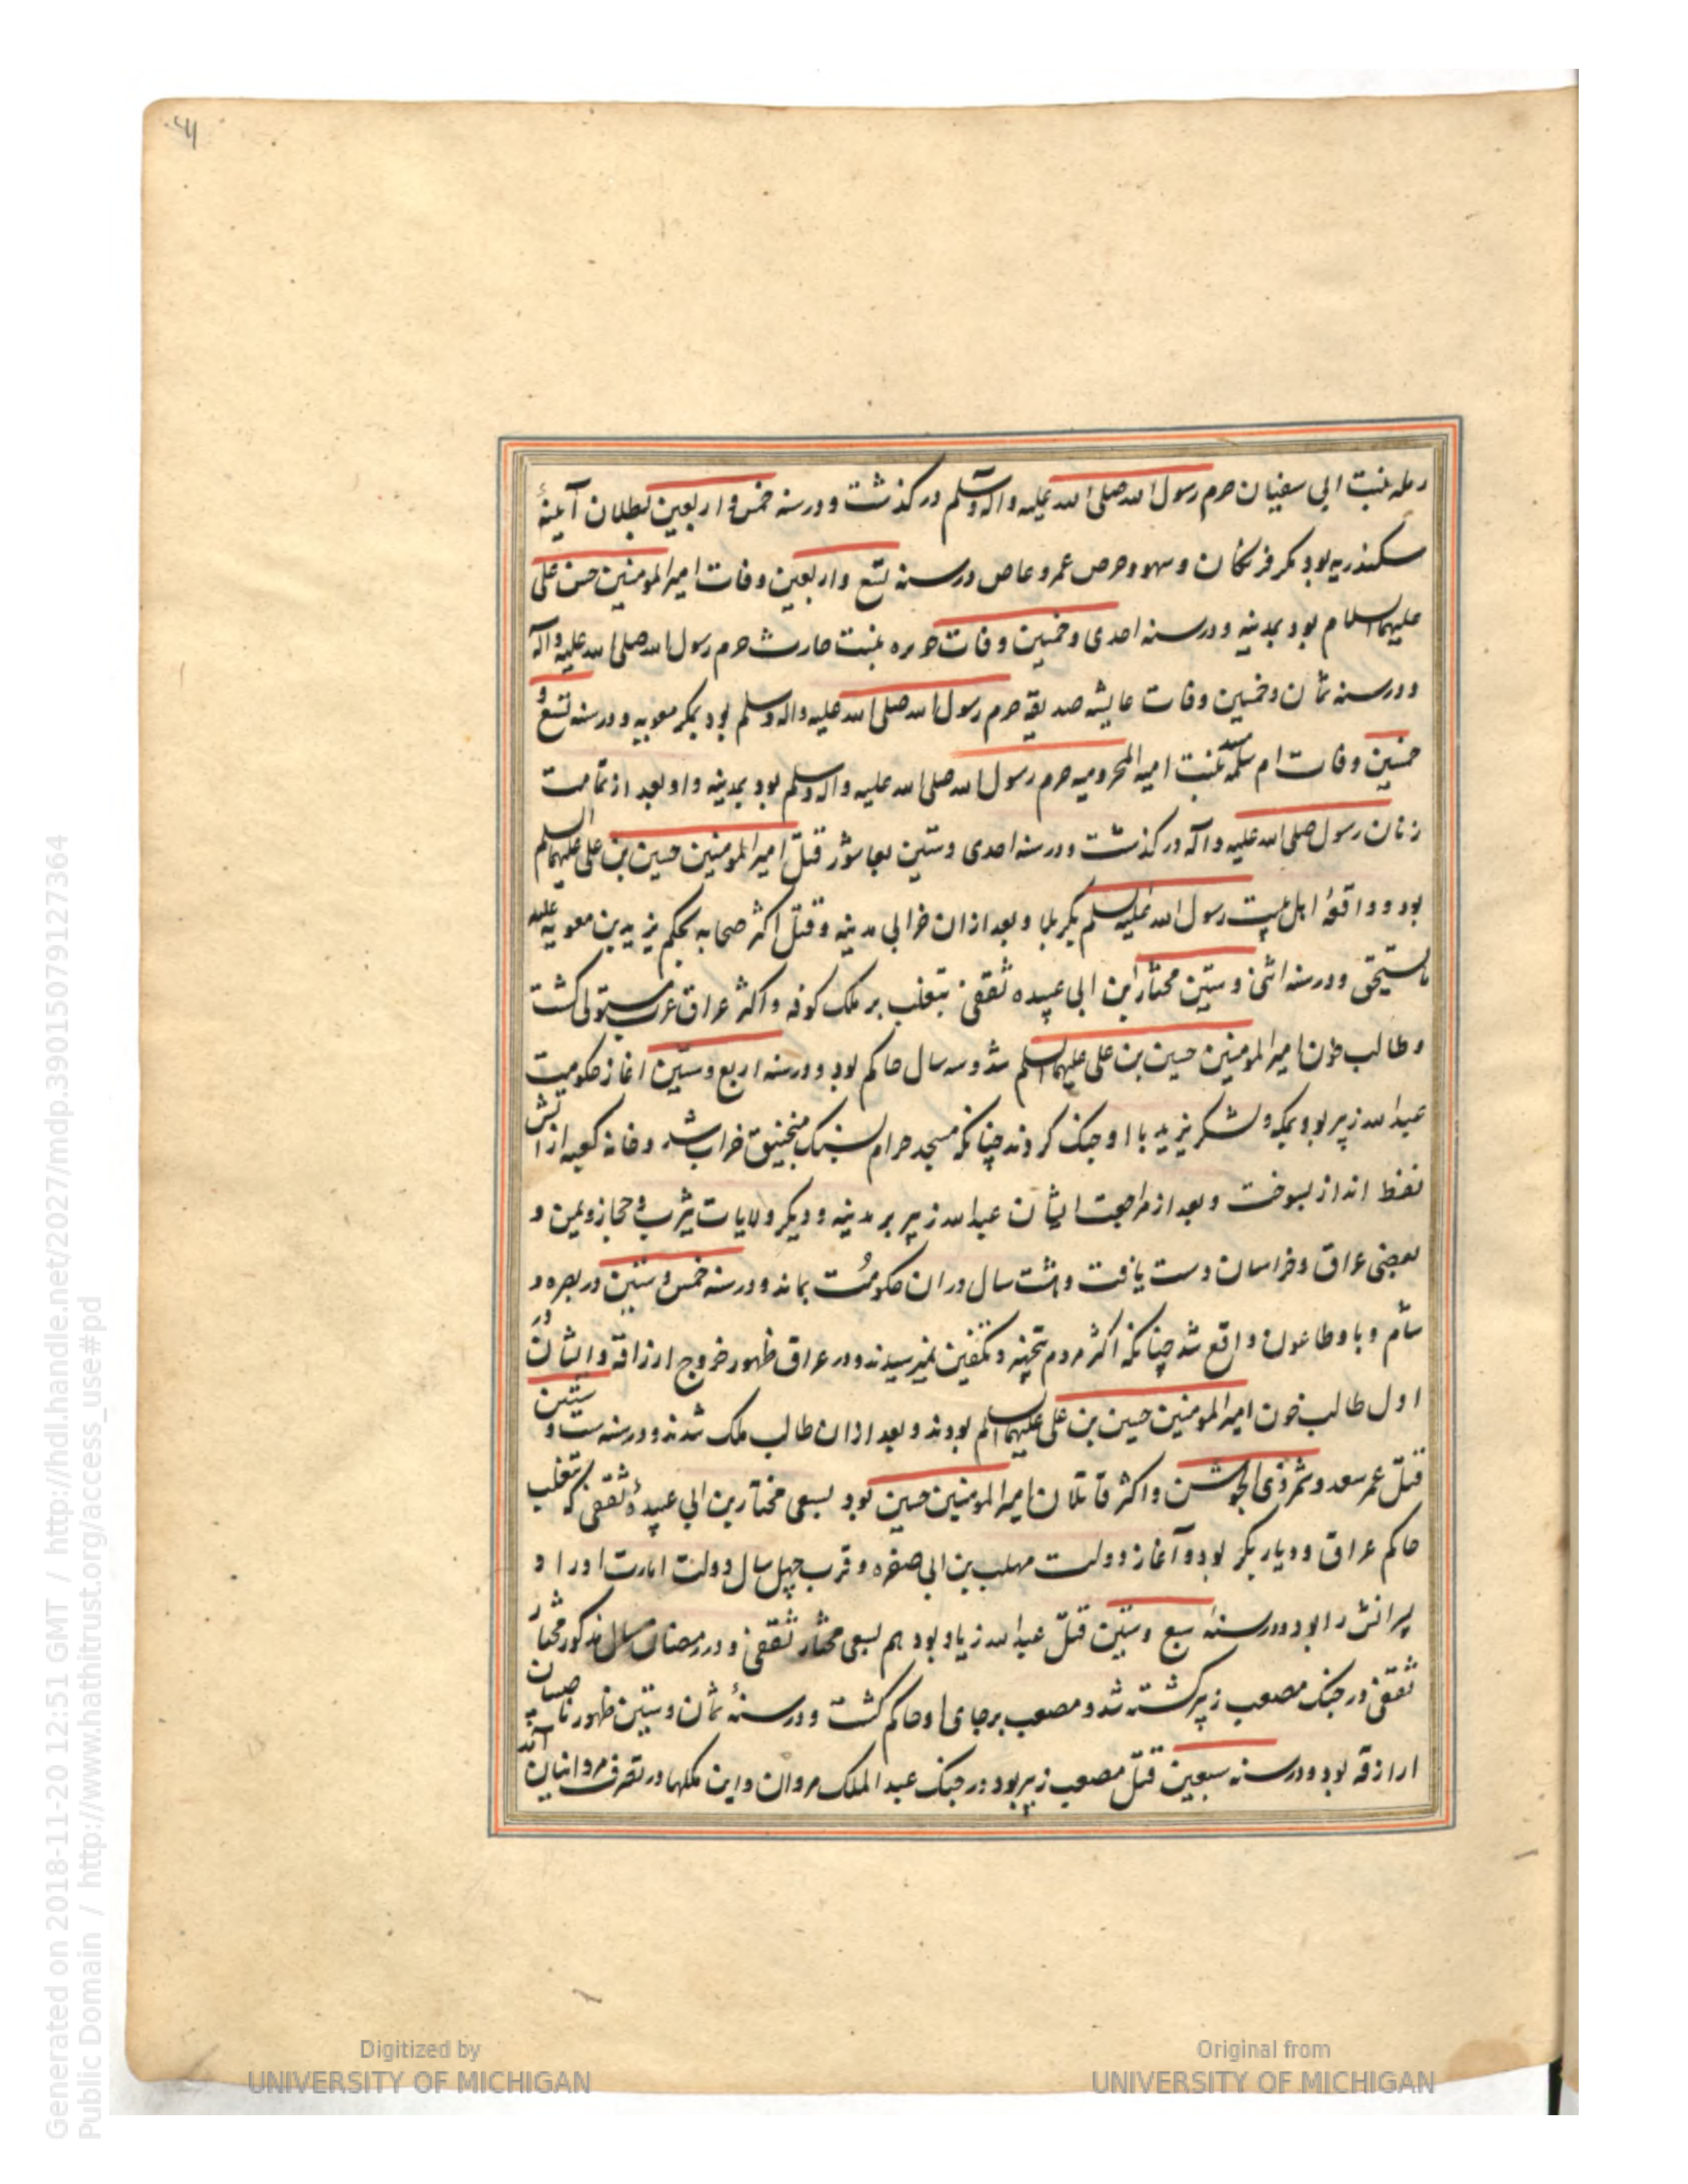 رمله بنت ابی سفیان حرم رسول الله صلی الله علیه و اله وسلم در گذشت و در سنه خمس و اربعین بطلان آینهٔ
سکندریه بود بمکر فرنگان و سهو و حرص عمرو عاص در سنه تسع و اربعین وفات امیر المومنین حسن علی
علیهما السلام بود بمدینه و در سنه احدی و خمسین وفات جویره بنت حارث حرم رسول الله صلی الله علیه و آله
و در سنه ثمان و خمسین وفات عایشه صدیقه حرم رسول الله صلی الله علیه و اله وسلم بود بمکر معویه و در سنه تسع و
خمسین وفات ام سلمه بنت امیه المخرومیه حرم رسول الله صلی الله علیه و اله وسلم بود بمدینه و او بعد از تمامت
زنان رسول صلی الله علیه و آله در گذشت و در سنه احدی و ستین بعاشور قتل امیر المومنین حسین بن علی علیهما السلم
بود و واقعهٔ اهل بیت رسول الله علیه السلم بکربلا و بعد از ان خرابی مدینه و قتل اکثر صحابه بحکم یزید بن معویه علیه
مایستحق و در سنه اثنی و ستین مختار بن ابی عبیده ثقفی بتغلب بر ملک کوفه و اکثر عراق عرب مستولی گشت
و طالب خون امیر المومنین حسین بن علی علیهما السلم شد و سه سال حاکم بود و در سنه اربع و ستین اغاز حکومت
عبد الله زبیر بود بمکه و لشکر یزید با او جنک کردند چنانکه مسجد حرام بسنک منجنیق خراب شد و خانه کعبه از اتش
نفط انداز بسوخت و بعد از مراجعت ایشان عبد الله زبیر بر مدینه و دیکر ولایات یثرب و حجاز و یمن و
بعضی عراق و خراسان دست یافت و هشت سال در ان حکومت بماند و در سنه خمس و ستین در بصره و
شام و با و طاعون واقع شد چنانکه اکثر مردم بتجهیز و تکفین نمیرسیدند و در عراق ظهور خروج ازراقه و ایشان در
اول طالب خون امیر المومنین حسین بن علی علیهما السلم بودند و بعد از ان طالب ملک شدند و در سنه ست و ستین
قتل عمر سعد و شمر ذی الجوشن و اکثر قاتلان امیر المومنین حسین بود بسعی مختار بن ابی عبیدهٔ ثقفی که بتغلب
حاکم عراق و دیار بکر بود و آغاز دولت مهلب بن ابی صفره و قرب چهل سال دولت امارت او را و
پسرانش را بود و در سنه سبع و ستین قتل عبد الله زیاد بود هم بسعی مختار ثقفی و در رمضان سال مذکور مختار
ثقفی در جنک مصعب زبیر کشته شد و مصعب برجای او حاکم گشت و در سنهٔ ثمان و ستین ظهور ناصبیان
ازارقه بود و در سنه سبعین قتل مصعب زبیر بود در جنک عبد الملک مروان و این ملکها در تصرف مروانیان آمد
Digitized by
UNIVERSITY OF MICHIGAN
Original from
UNIVERSITY OF MICHIGAN
Generated on 2018-11-20 12:51 GMT / http://hdl.handle.net/2027/mdp.39015079127364
Public Domain / http://www.hathitrust.org/access_use#pd